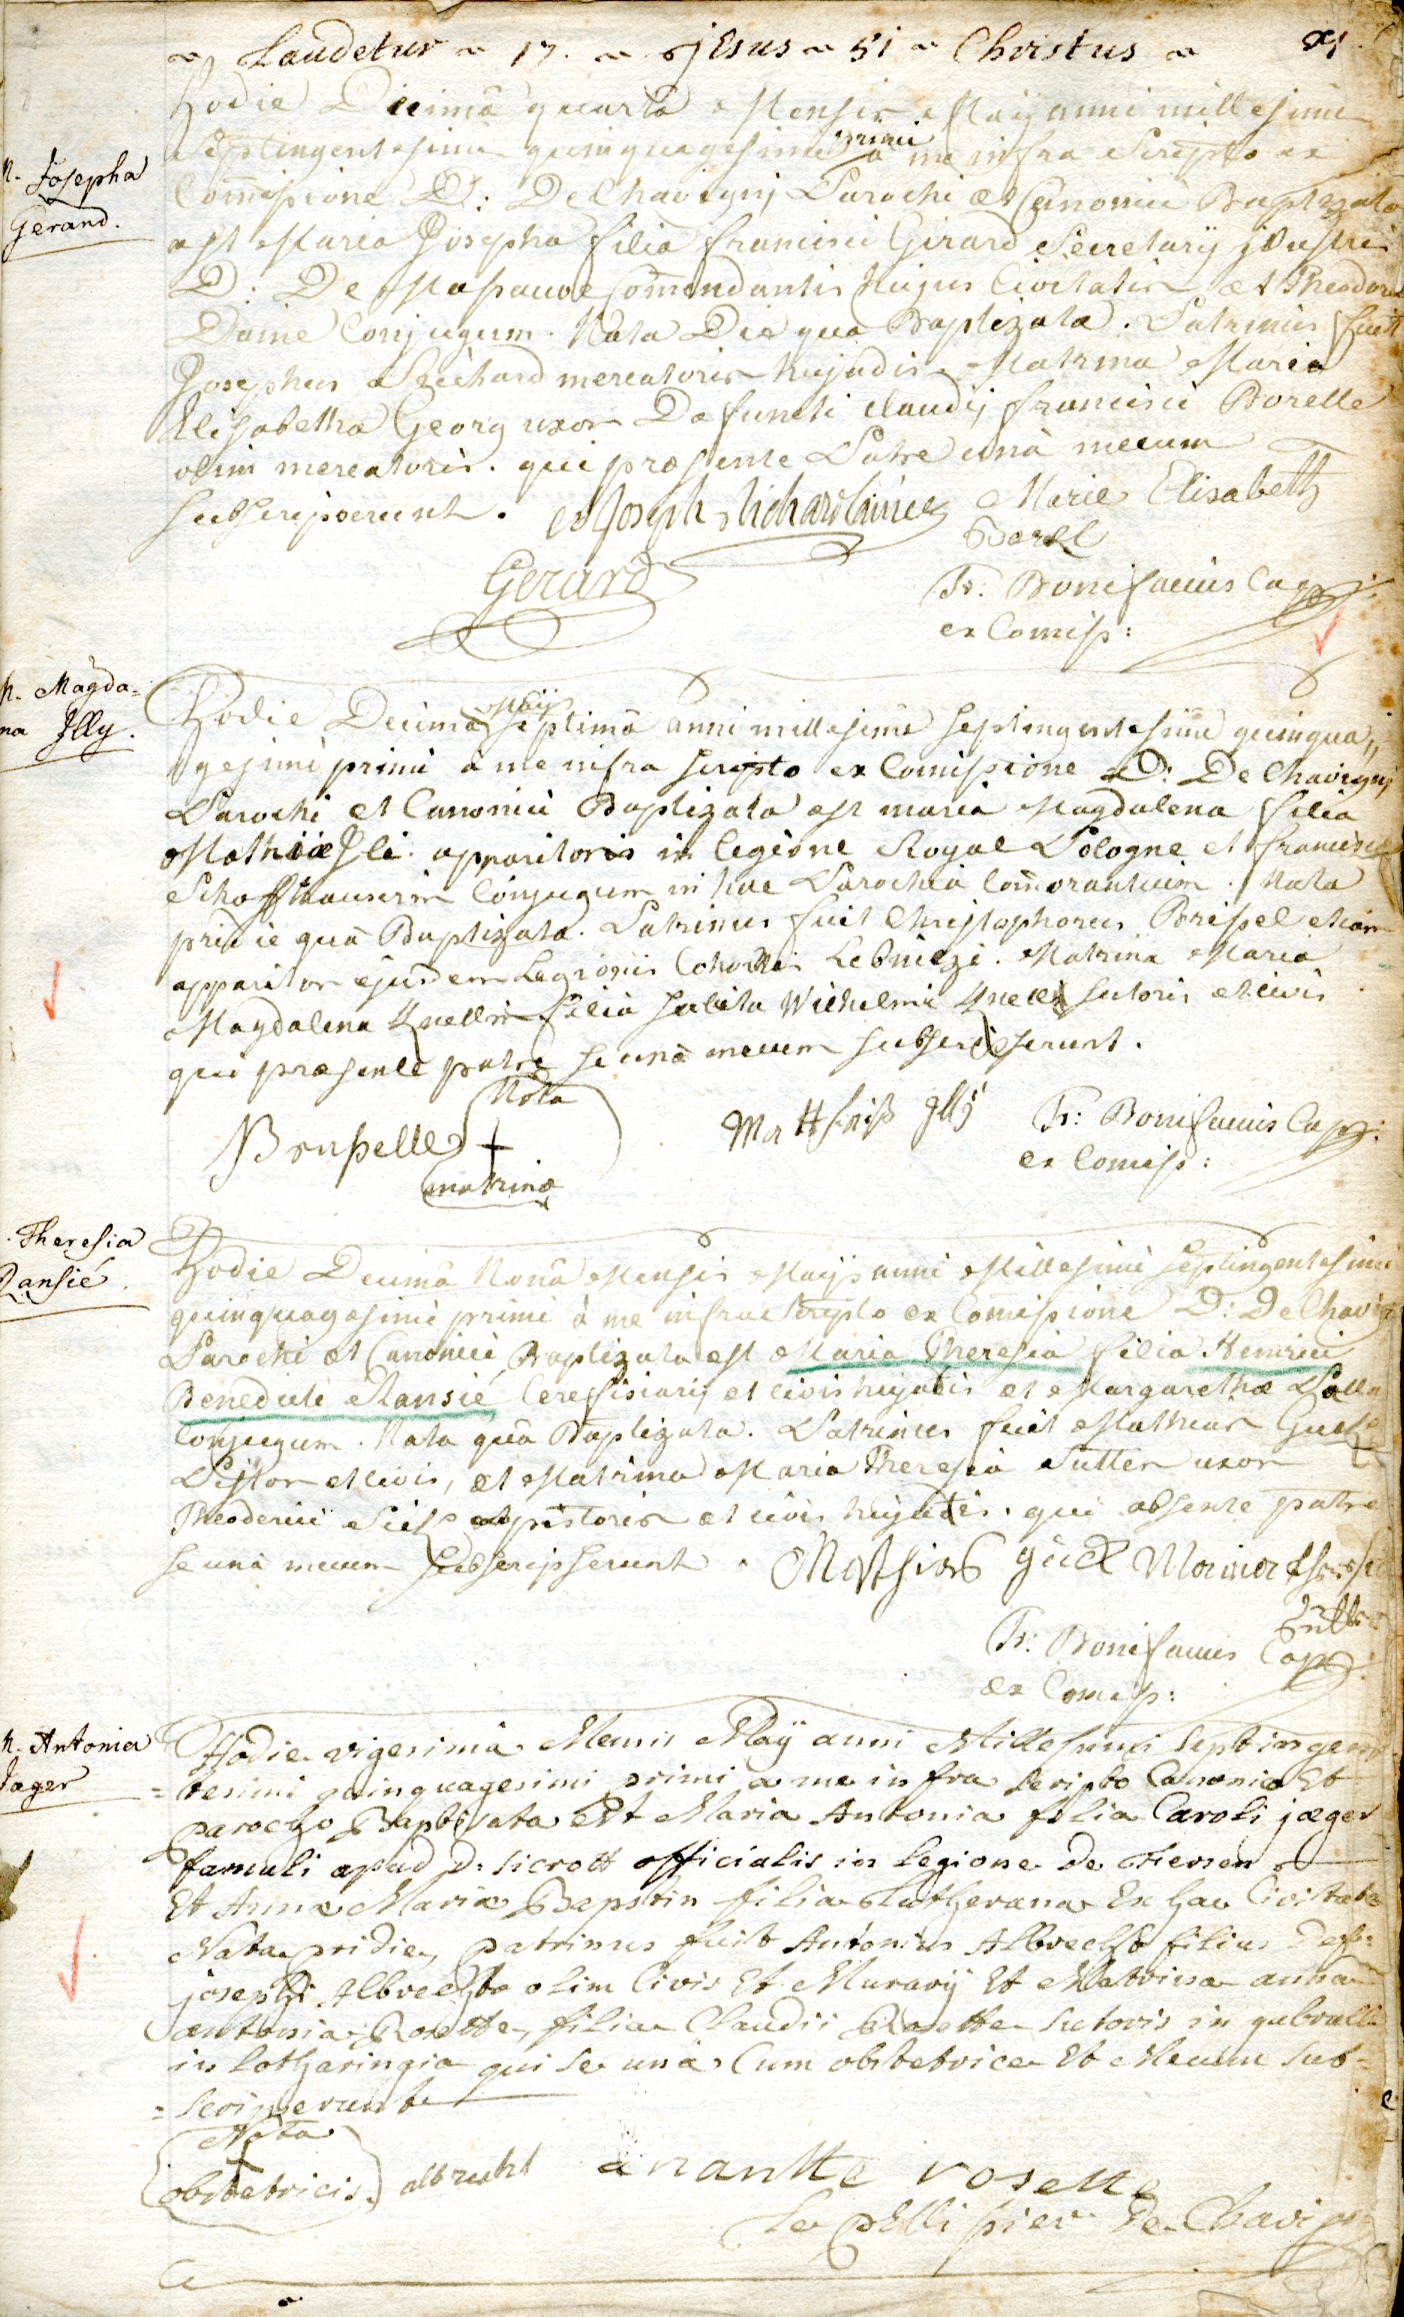 Laudetur 17. Jesus 51 Christus
Hodie Decimâ quartâ Mensis Maÿ anni millesimi
Septingentesimi quinquagesimi primi à me infra Scripto ex
M. Josepha
Gerard.
Comissione D: De Chavignÿ Parochi et Canonici Baptizata
est Maria Josepha filia francisci Girard Secretarÿ jllustris
D: De Massauve Commendantis hujus Civitatis et Theodora
Daine Conjugum. Nata Die qua Baptizata. Patrinus fuit
Josephus Richard mercatoris hujatis. Matrina Maria
Elisabetha Georg uxor Defuncti claudÿ francisci Borelle
olim mercatoris. qui præsente Patre unà mecum
subscripserunt. Joseph Richard Marie Elisabeth
Borel
Gerard
Fr: Bonifacius Cap:
ex Comiss:
M. Magda=
na Jlly.
Hodie Decimâ Septimâ Maÿ anni millesimi septingentesimi quinqua,,
gesimi primi à me infra scripto ex Comissione D: De Chavignÿ
Parochi et Canonici Baptizata est maria Magdalena filia
Mathiæ Jli apparitoris in legione Royal Pologne et francisca
Schaffhauserin Conjugum in hac Parochia Commorantium. Nata
pridie quâ Baptizata. Patrinus fuit Christophorus
apparitor ejusdem Legionis Cohortis. Matrina Maria
Magdalena filia Wilhelmi sutoris et civis
qui præsente patre se unà mecum subscripserunt.
Nota
+
matrinæ
Fr: Bonifacius Cap:
ex Comiss:
Theresia
Ransié.
Hodie Decimâ Nonâ Mensis Maÿ anni Millesimi septingentesimi
quinquagesimi primi à me infra Scripto ex Comissione D: De Chavig
Parochi et Canonici Baptizata est Maria Theresia filia Henrici
Benedicti Ransié Cerefisiarÿ et civis hujatis et Margarethæ
Conjugum. Nata quâ Baptizata. Patrinus fuit Mathias
Pistor et civis, et Matrina Maria Theresia Sutter uxor
Theoderici pistoris et civis hujatis. qui absente patre
se unà mecum subscripserunt. Mathias gück Maria
Fr: Bonifacius Cap:
ex Comiss:
M. Antonia
Jæger
Hodie vigesimâ Mensis Maÿ anni Millesimi septingen
=tesimi quinquagesimi primi a me infra scripto Canonico Et
parocho Baptizata Est Maria Antonia filia Caroli jæger
famuli apud D: sicrott officialis in legione de Fersen
Et Anna Maria Bepstin filia Lutherana Ex hac Civitate
Nata pridie, patrinus fuit Antonius Albrecht filius def:
josephi Albrecht olim Civis Et Murarÿ Et Matrina anna
antonia Rosette, filia Claudii Rosette sutoris in
in lotharingia qui se unà Cum obstetrice Et Mecum sub=
=scripserunt
Nota
+
obstetricis. albrecht anantte rosette
Le pelli sier De Chavigny